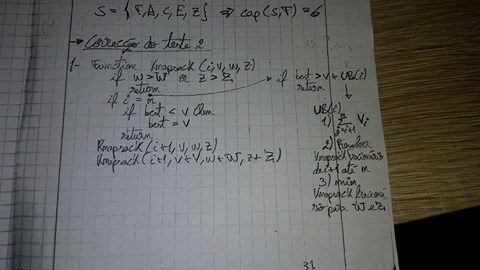 S = {F, A, C, E, Z} => cap(S,T) = 6
→ Correcção do teste 2
1- Function Knapsack (i, v, w, z)
if w > W or z > Z
return
if i = m
if best < v then
best = v
return
Knapsack (i+1, v, w, z)
Knapsack (i+1, v+Vi, w+Wi, z+Zi)
if best > v + UB(i)
return
UB(i)
1) Σ Vi
j=i+1
2) Resolva
Knapsack
de i+1 até m
3) mim
Knapsack
para W e Z
31